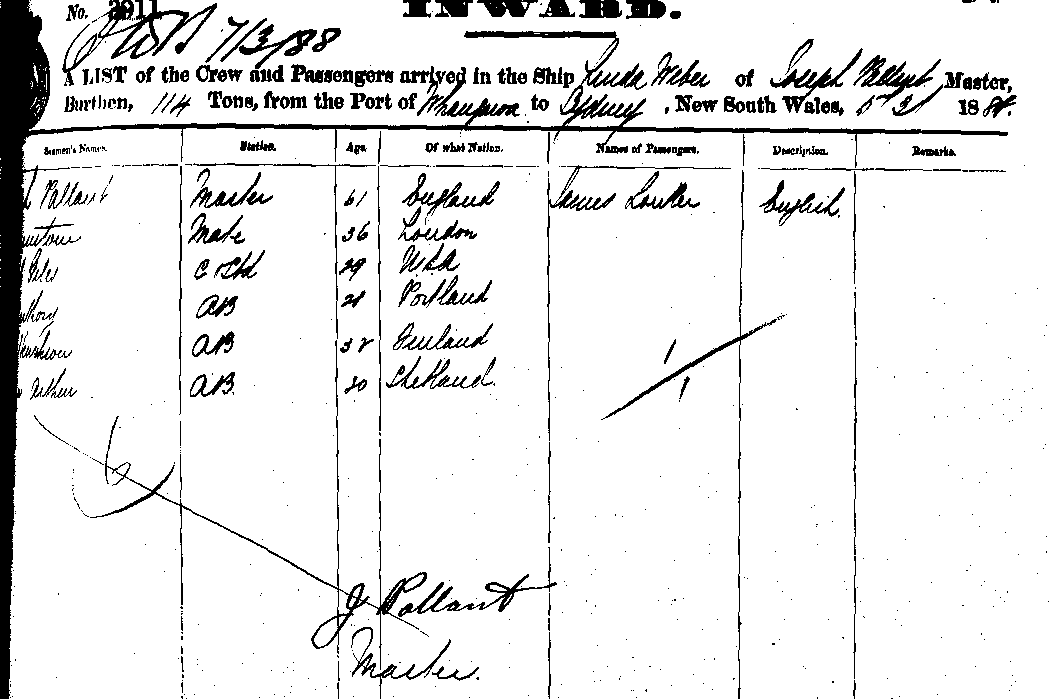 No. 3911
INWARD.
7/3/88
A LIST of the Crew and Passengers arrived in the Ship Linda Weber of Joseph Pallant, Master,
Burthen, 114 Tons, from the Port of to Sydney, New South Wales, 1888.
Seamen's Names. Station. Age. Of what Nation. Names of Passengers. Description. Remarks.
Pallant Master 61 England James English
Mate 36 London
29 USA
AB 28 Portland
AB Finland
Arthur AB 20 Shetland
6 1
1
J Pallant
Master.